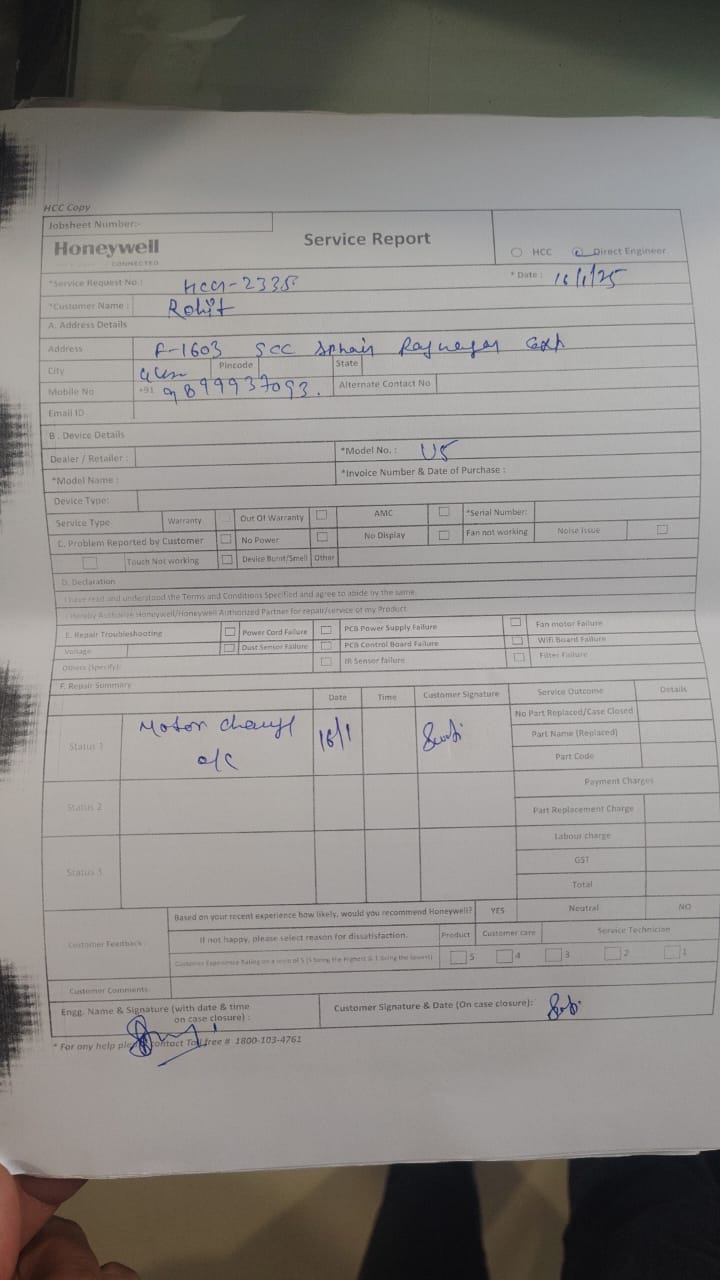 HCC Copy
Jobsheet Number:-
Honeywell
CONNECTED
Service Report
HCC Direct Engineer
*Service Request No.: * Date : 16/1/25
*Customer Name : Rohit
A. Address Details
Address F-1603 SCC
City Pincode State
Mobile No +91 9899937093. Alternate Contact No
Email ID
B . Device Details
Dealer / Retailer : *Model No. : U5
*Model Name : *Invoice Number & Date of Purchase :
Device Type:
Service Type Warranty Out Of Warranty AMC *Serial Number:
C. Problem Reported by Customer No Power No Display Fan not working Noise Issue
Touch Not working Device Burnt/Smell Other
D. Declaration
I have read and understood the Terms and Conditions Specified and agree to abide by the same.
I Hereby Authorize Honeywell/Honeywell Authorized Partner for repair/service of my Product
E. Repair Troubleshooting Power Cord Failure PCB Power Supply Failure Fan motor Failure
Voltage Dust Sensor Failure PCB Control Board Failure Wifi Board Failure
Others (Specify): IR Sensor failure Filter Failure
F. Repair Summary
Date Time Customer Signature Service Outcome Details
Status 1 Motor 16/1 No Part Replaced/Case Closed
Part Name (Replaced)
Part Code
Payment Charges
Status 2 Part Replacement Charge
Labour charge
Status 3 GST
Total
Customer Feedback Based on your recent experience how likely, would you recommend Honeywell? YES Neutral NO
If not happy, please select reason for dissatisfaction. Product Customer care Service Technician
Customer Experience Rating on a scale of 5 (5 being the Highest & 1 being the lowest) 5 4 3 2 1
Customer Comments
Engg. Name & Signature (with date & time on case closure) : Customer Signature & Date (On case closure):
* For any help please contact Toll free # 1800-103-4761